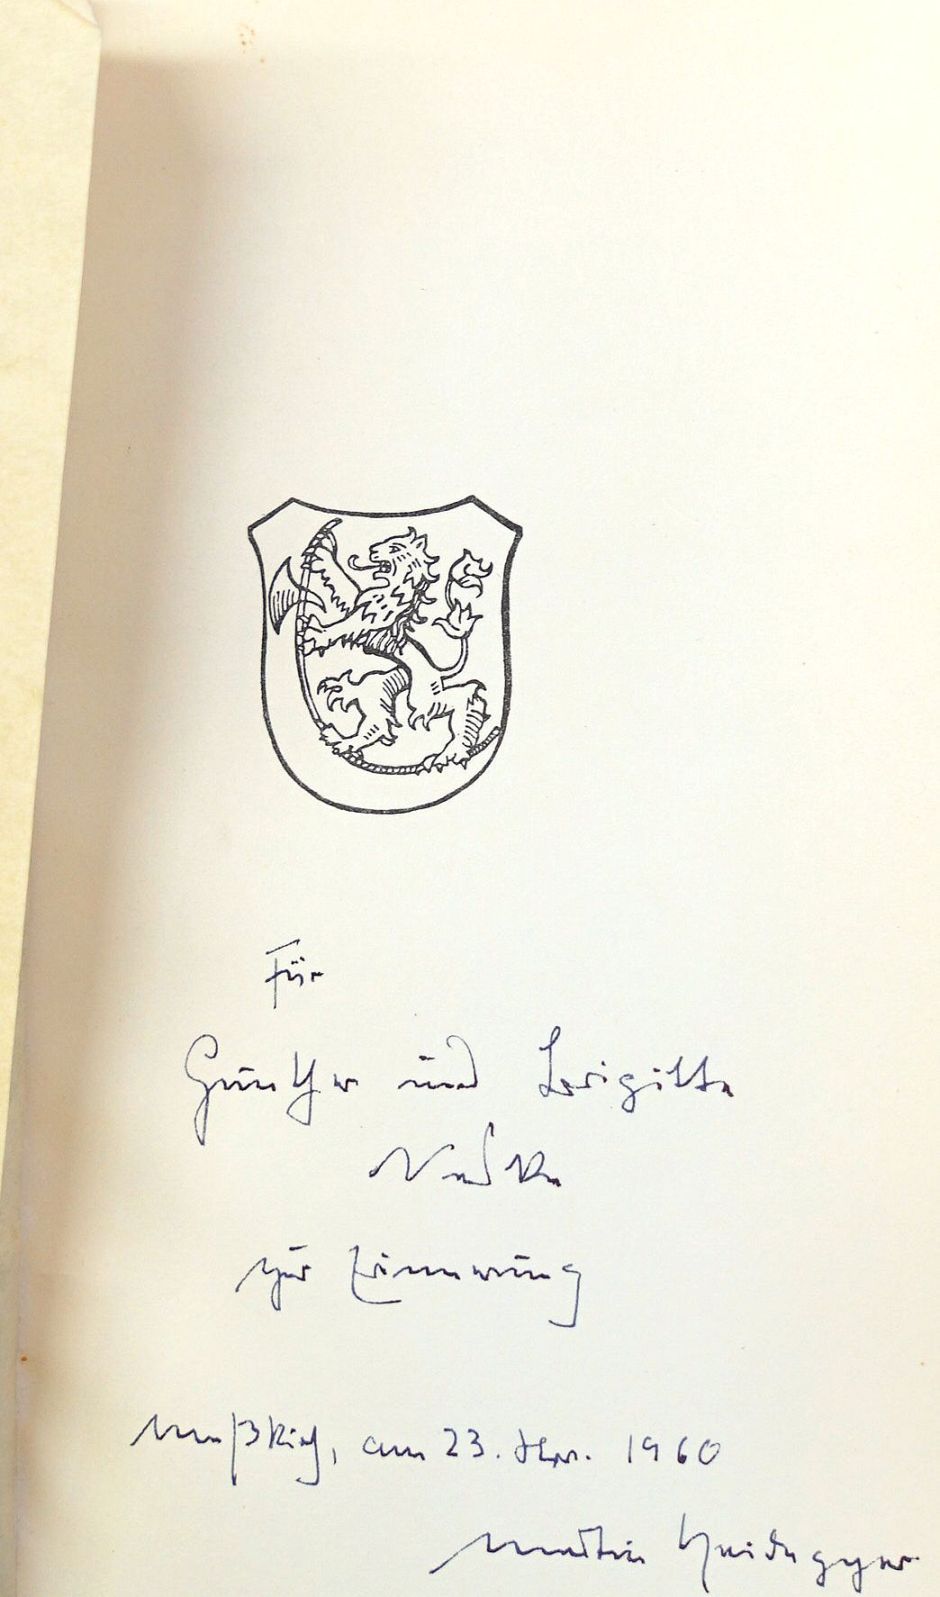 Für
Günther und Brigitte
zur Erinnerung
Meßkirch, am 23. 1960
Martin Heidegger